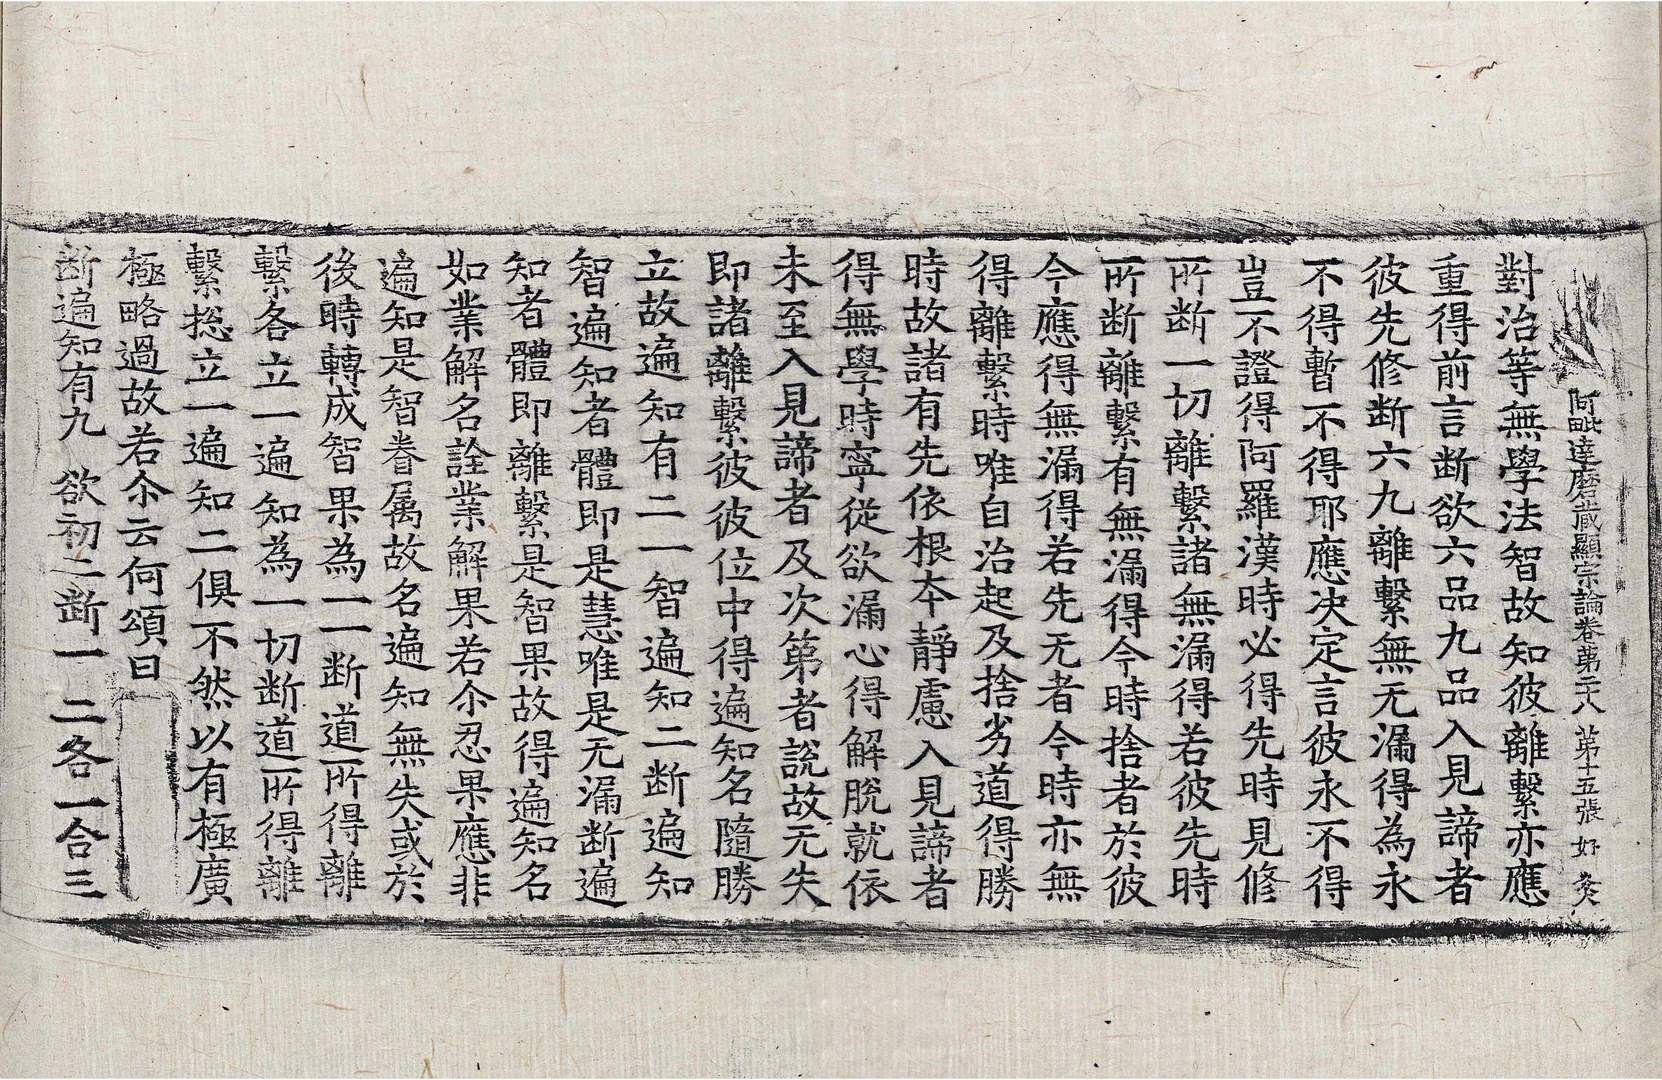 阿毗達磨藏顯宗論卷第二十八 第十五張 好 炎
對治等無學法智故知彼離繫亦應
重得前言断欲六品九品入見諦者
彼先修断六九離繫無无漏得為永
不得暫不得耶應决定言彼永不得
豈不證得阿羅漢時必得先時見修
所断一切離繫諸無漏得若彼先時
所断離繫有無漏得今時捨者於彼
今應得無漏得若先无者今時亦無
得離繫時唯自治起及捨劣道得勝
時故諸有先依根本靜慮入見諦者
得無學時寧從欲漏心得解脫就依
未至入見諦者及次第者說故无失
即諸離繫彼彼位中得遍知名隨勝
立故遍知有二一智遍知二断遍知
智遍知者體即是慧唯是无漏断遍
知者體即離繫是智果故得遍知名
如業解名詮業解果若尒忍果應非
遍知是智眷属故名遍知無失或於
後時轉成智果為一一断道所得離
繫各立一遍知為一切断道所得離
繫捴立一遍知二俱不然以有極廣
極略過故若尒云何頌曰
断遍知有九 欲初二断一 二各一合三